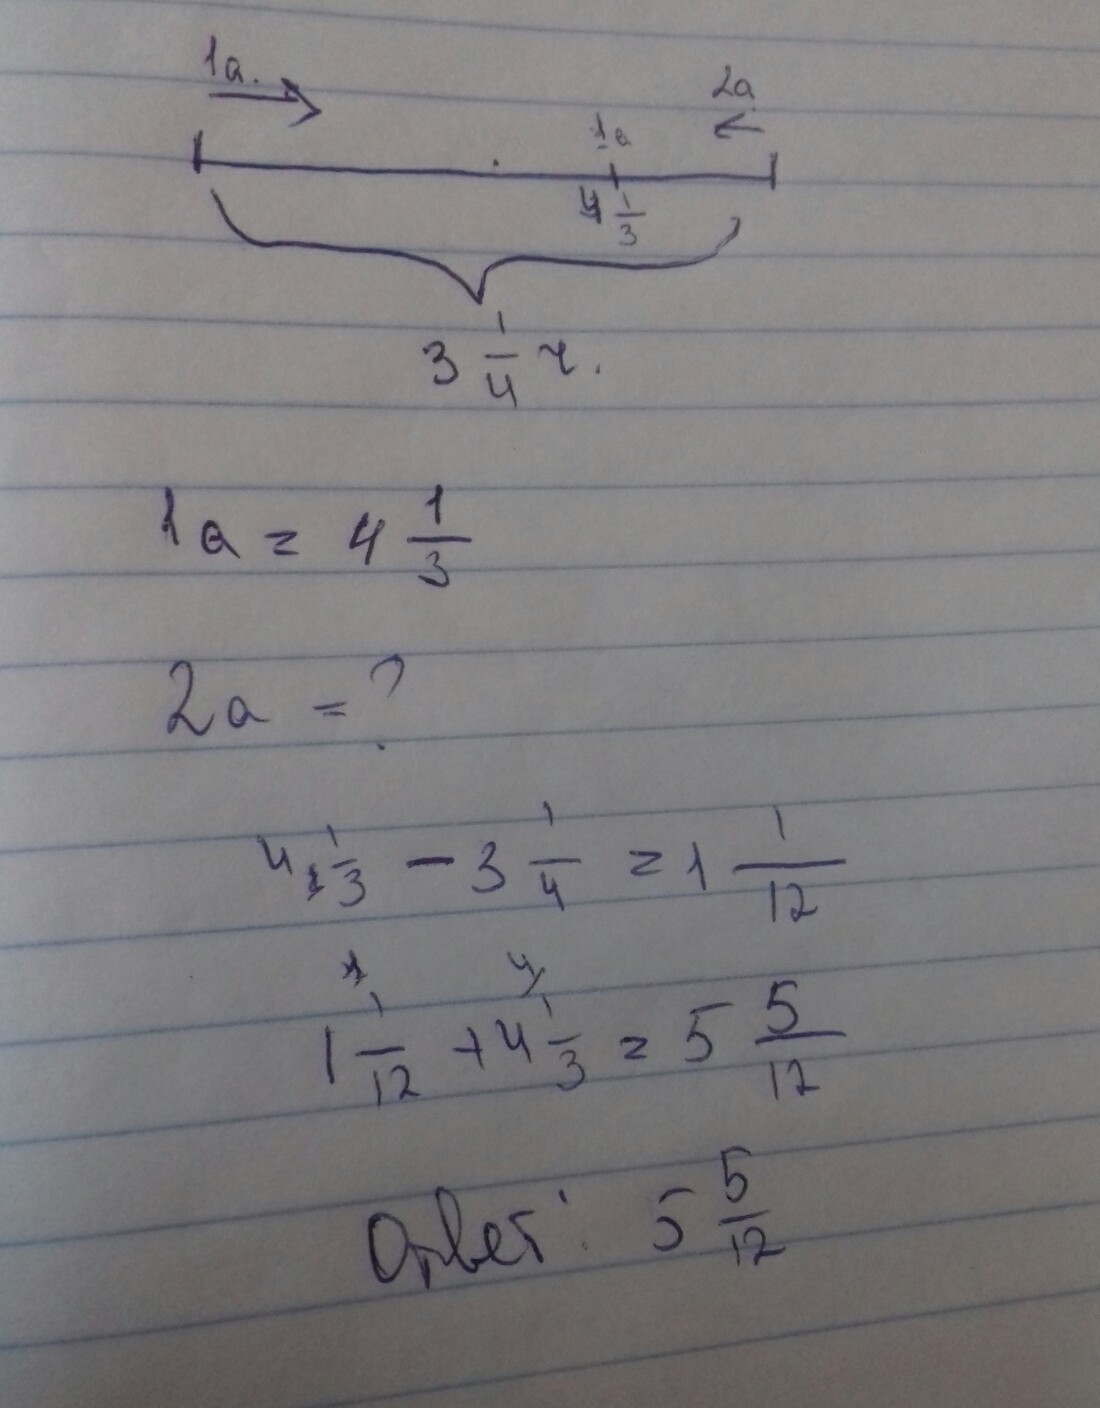 1а.
2а
1а
4 1/3
3 1/4 ч.
1а = 4 1/3
2а = ?
4 1/3 - 3 1/4 = 1 1/12
1 1/12 + 4 1/3 = 5 5/12
Ответ: 5 5/12